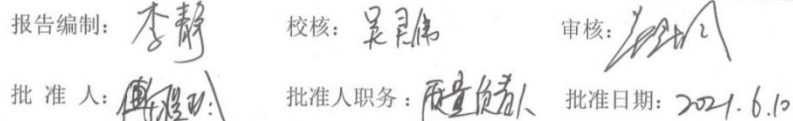 报告编制: 李静 校核: 吴君伟 审核:
批 准 人: 批准人职务: 质量负责人 批准日期: 2021.6.10